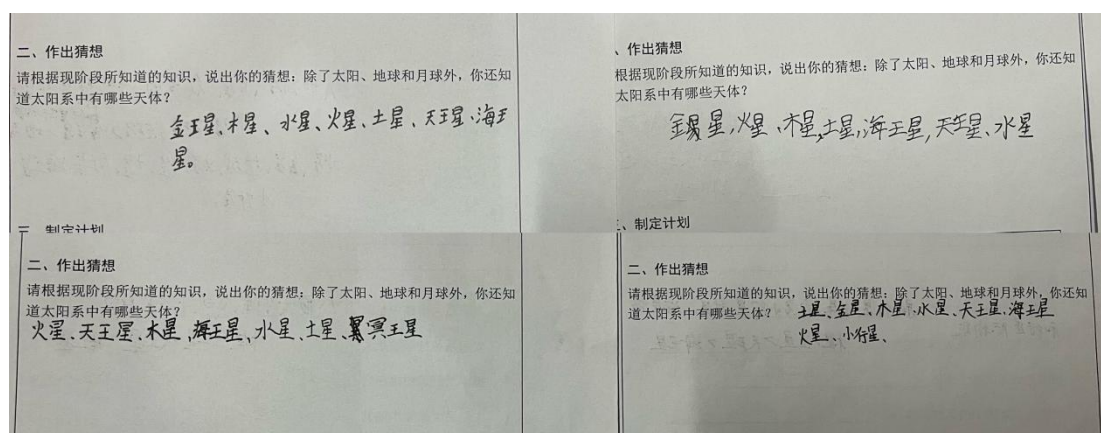 二、作出猜想
请根据现阶段所知道的知识，说出你的猜想：除了太阳、地球和月球外，你还知
道太阳系中有哪些天体？
金王星、木星、水星、火星、土星、天王星、海王
星。
三、制定计划
、作出猜想
根据现阶段所知道的知识，说出你的猜想：除了太阳、地球和月球外，你还知
太阳系中有哪些天体？
金星，火星、木星，土星，海王星，天王星、水星
三、制定计划
二、作出猜想
请根据现阶段所知道的知识，说出你的猜想：除了太阳、地球和月球外，你还知
道太阳系中有哪些天体？
火星、天王星、木星，海王星，水星、土星、冥王星
二、作出猜想
请根据现阶段所知道的知识，说出你的猜想：除了太阳、地球和月球外，你还知
道太阳系中有哪些天体？
土星、金星、木星、水星、天王星、海王星
火星、小行星、